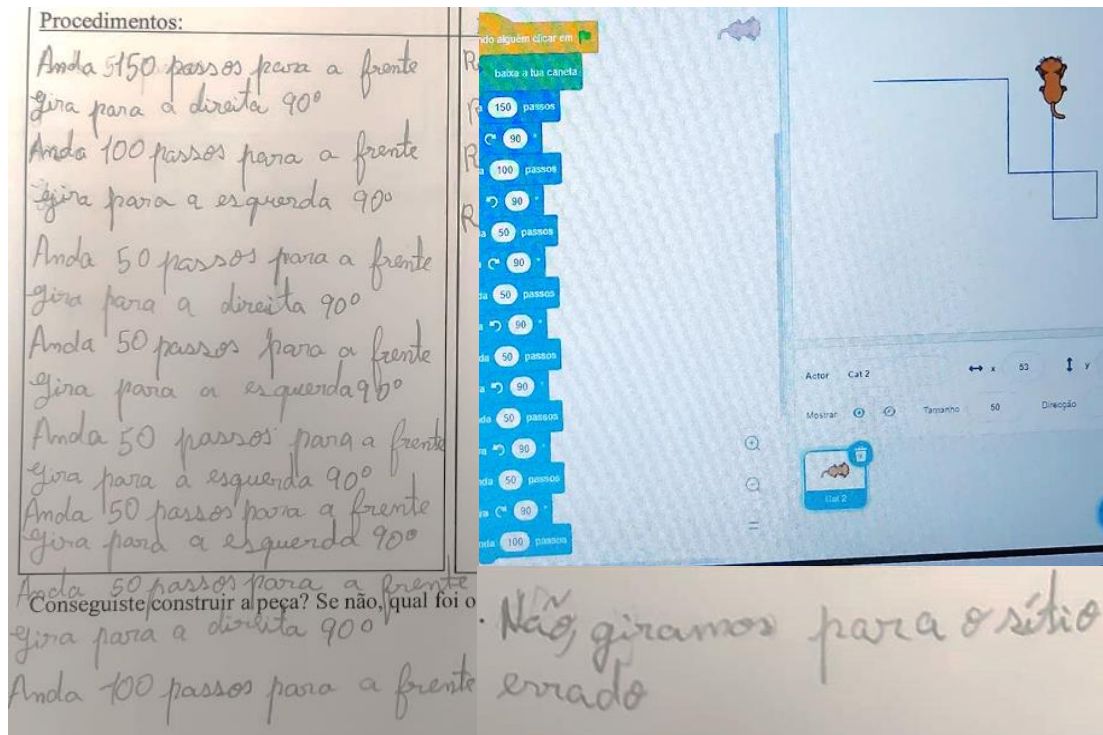 Procedimentos:
Anda 5150 passos para a frente
gira para a direita 90°
Anda 100 passos para a frente
gira para a esquerda 90°
Anda 50 passos para a frente
gira para a direita 90°
Anda 50 passos para a frente
gira para a esquerda 90°
Anda 50 passos para a frente
gira para a esquerda 90°
Anda 50 passos para a frente
gira para a esquerda 90°
Anda 50 passos para a frente
Conseguiste construir a peça? Se não, qual foi o
gira para a direita 90°
Anda 100 passos para a frente
R
R
R
R
ndo alguém clicar em
baixa a tua caneta
a 150 passos
90 °
a 100 passos
90 °
a 50 passos
90 °
da 50 passos
a 90 °
da 50 passos
a 90 °
da 50 passos
a 90 °
nda 50 passos
ra 90 °
nda 100 passos
Actor Cat 2 x 53 y
Mostrar Tamanho 50 Direcção
Cat 2
Não, giramos para o sítio
errado